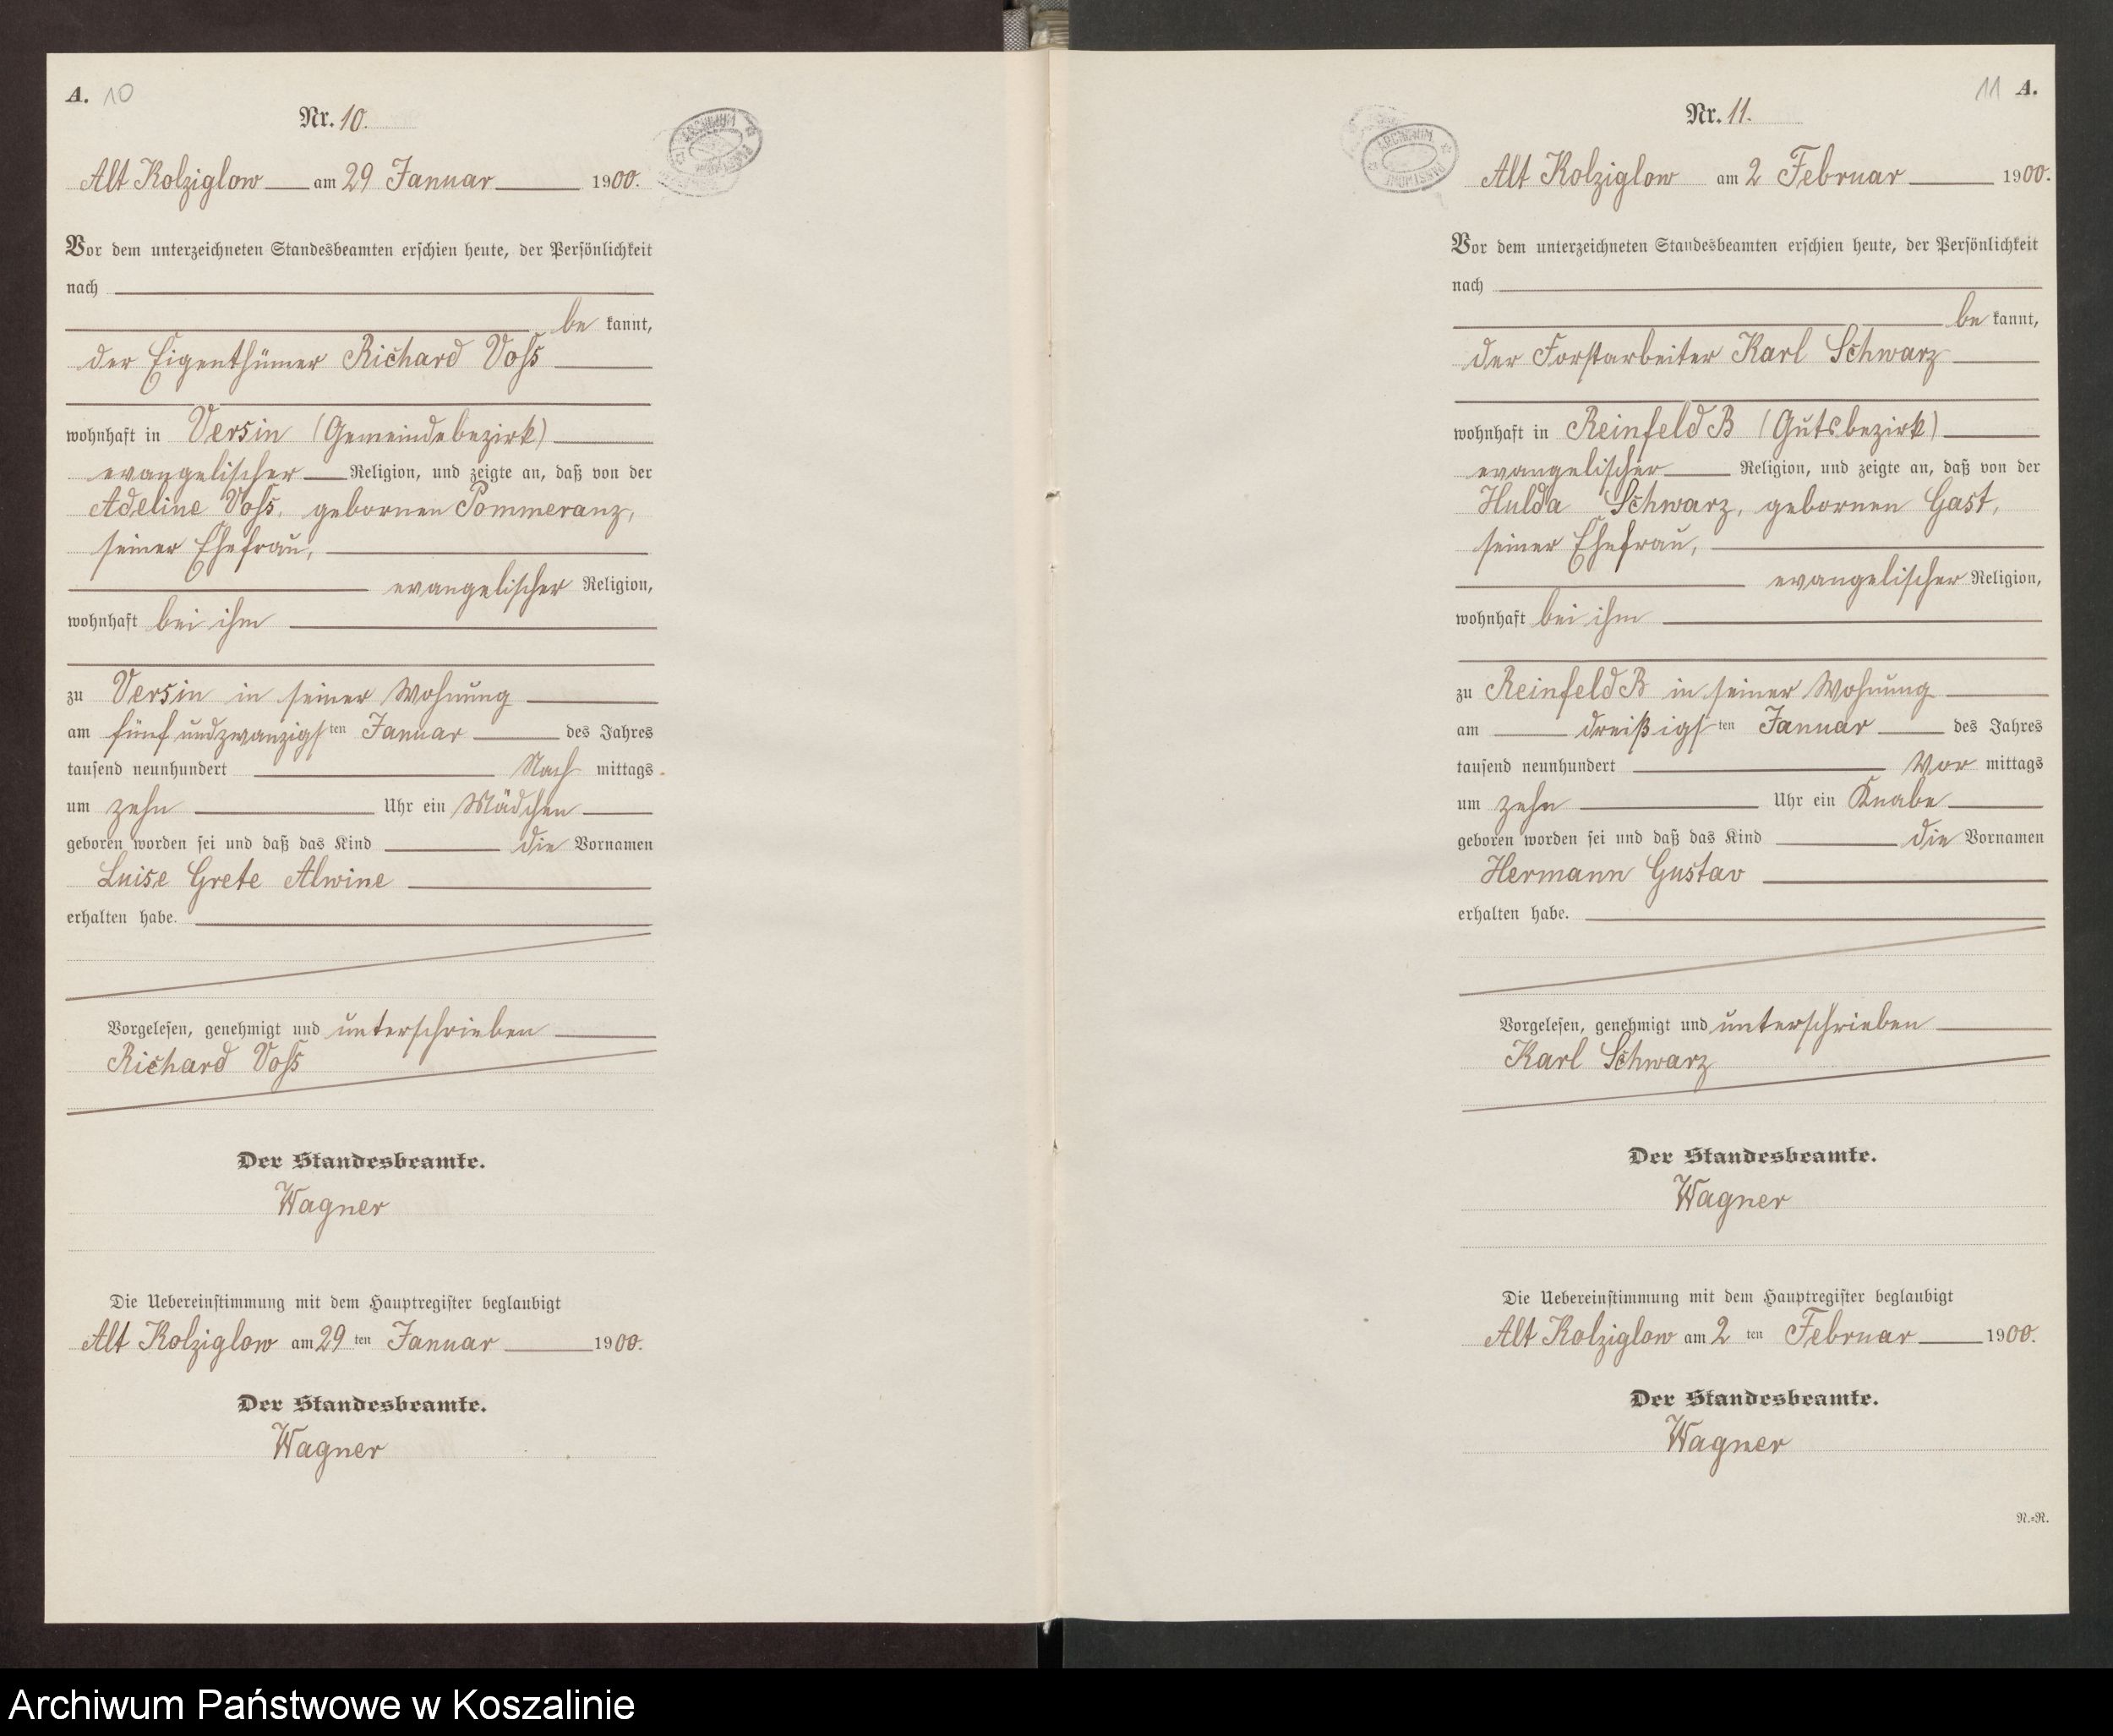 A. 10
Nr. 10.
Alt Kolziglow am 29 Januar 1900.
Vor dem unterzeichneten Standesbeamten erschien heute, der Persönlichkeit
nach
be kannt,
der Eigenthümer Richard Voss
wohnhaft in Versin (Gemeindebezirk)
evangelischer Religion, und zeigte an, daß von der
Adeline Voss, gebornen Pommeranz,
seiner Ehefrau,
evangelischer Religion,
wohnhaft bei ihm
zu Versin in seiner Wohnung
am fünf und zwanzigsten Januar des Jahres
tausend neunhundert Nach mittags
um zehn Uhr ein Mädchen
geboren worden sei und daß das Kind die Vornamen
Luise Grete Alwine
erhalten habe.
Vorgelesen, genehmigt und unterschrieben
Richard Voss
Der Standesbeamte.
Wagner
Die Uebereinstimmung mit dem Hauptregister beglaubigt
Alt Kolziglow am 29 ten Januar 1900.
Der Standesbeamte.
Wagner
ARCHIWUM
11 A.
Nr. 11.
Alt Kolziglow am 2 Februar 1900.
Vor dem unterzeichneten Standesbeamten erschien heute, der Persönlichkeit
nach
be kannt,
der Forstarbeiter Karl Schwarz
wohnhaft in Reinfeld B (Gutsbezirk)
evangelischer Religion, und zeigte an, daß von der
Hulda Schwarz, gebornen Gast,
seiner Ehefrau,
evangelischer Religion,
wohnhaft bei ihm
zu Reinfeld B in seiner Wohnung
am dreißigsten Januar des Jahres
tausend neunhundert Vor mittags
um zehn Uhr ein Knabe
geboren worden sei und daß das Kind die Vornamen
Hermann Gustav
erhalten habe.
Vorgelesen, genehmigt und unterschrieben
Karl Schwarz
Der Standesbeamte.
Wagner
Die Uebereinstimmung mit dem Hauptregister beglaubigt
Alt Kolziglow am 2 ten Februar 1900.
Der Standesbeamte.
Wagner
N.=R.
ARCHIWUM
Archiwum Państwowe w Koszalinie